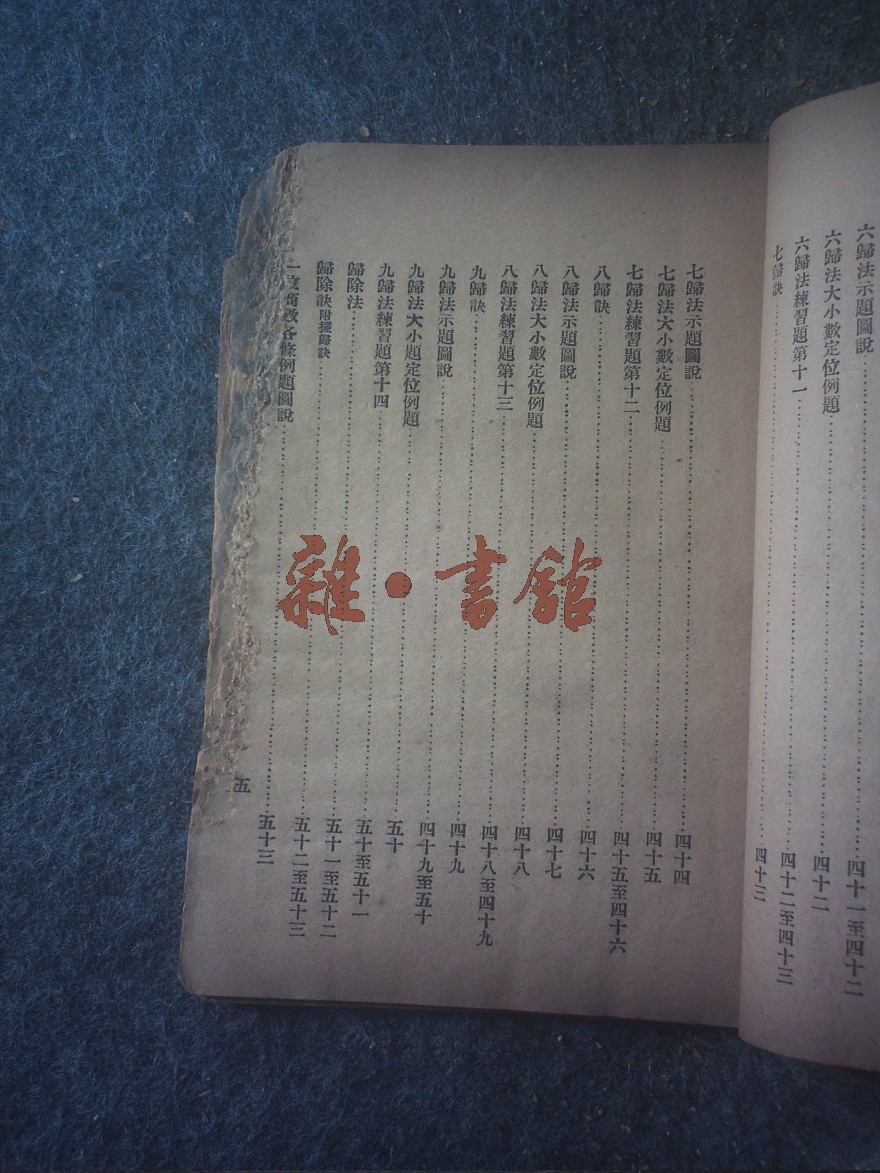 六歸法示題圖說……四十一至四十二
六歸法大小數定位例題……四十二
六歸法練習題第十一……四十二至四十三
七歸訣……四十三
七歸法示題圖說……四十四
七歸法大小數定位例題……四十五
七歸法練習題第十二……四十五至四十六
八歸訣……四十六
八歸法示題圖說……四十七
八歸法大小數定位例題……四十八
八歸法練習題第十三……四十八至四十九
九歸訣……四十九
九歸法示題圖說……四十九至五十
九歸法大小題定位例題……五十
九歸法練習題第十四……五十至五十一
歸除法……五十一至五十二
歸除訣附撞歸訣……五十二至五十三
一商數各條例題圖說……五十三
五
雜·書館